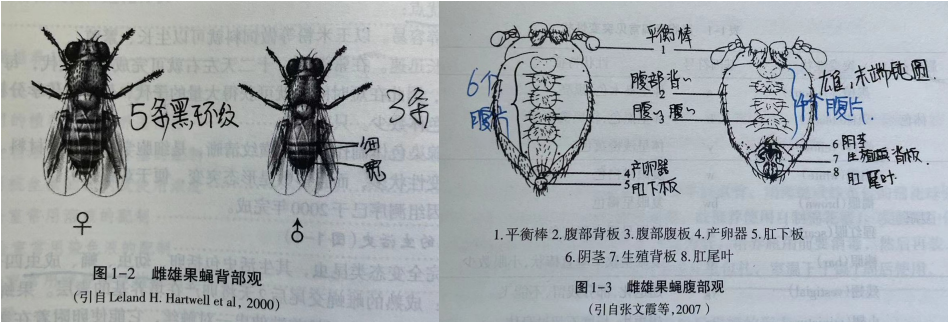 5条黑环纹
3条
细
宽
♀
♂
图1-2 雌雄果蝇背部观
(引自Leland H. Hartwell et al, 2000)
平衡棒
1
6个
腹片
腹部背
2
腹
3
腹
4个腹片
雄,末端钝圆
4 产卵器
5 肛下板
6 阴茎
7 生殖背板
8 肛尾叶
1.平衡棒 2.腹部背板 3.腹部腹板 4.产卵器 5.肛下板
6.阴茎 7.生殖背板 8.肛尾叶
图1-3 雌雄果蝇腹部观
(引自张文霞等,2007)